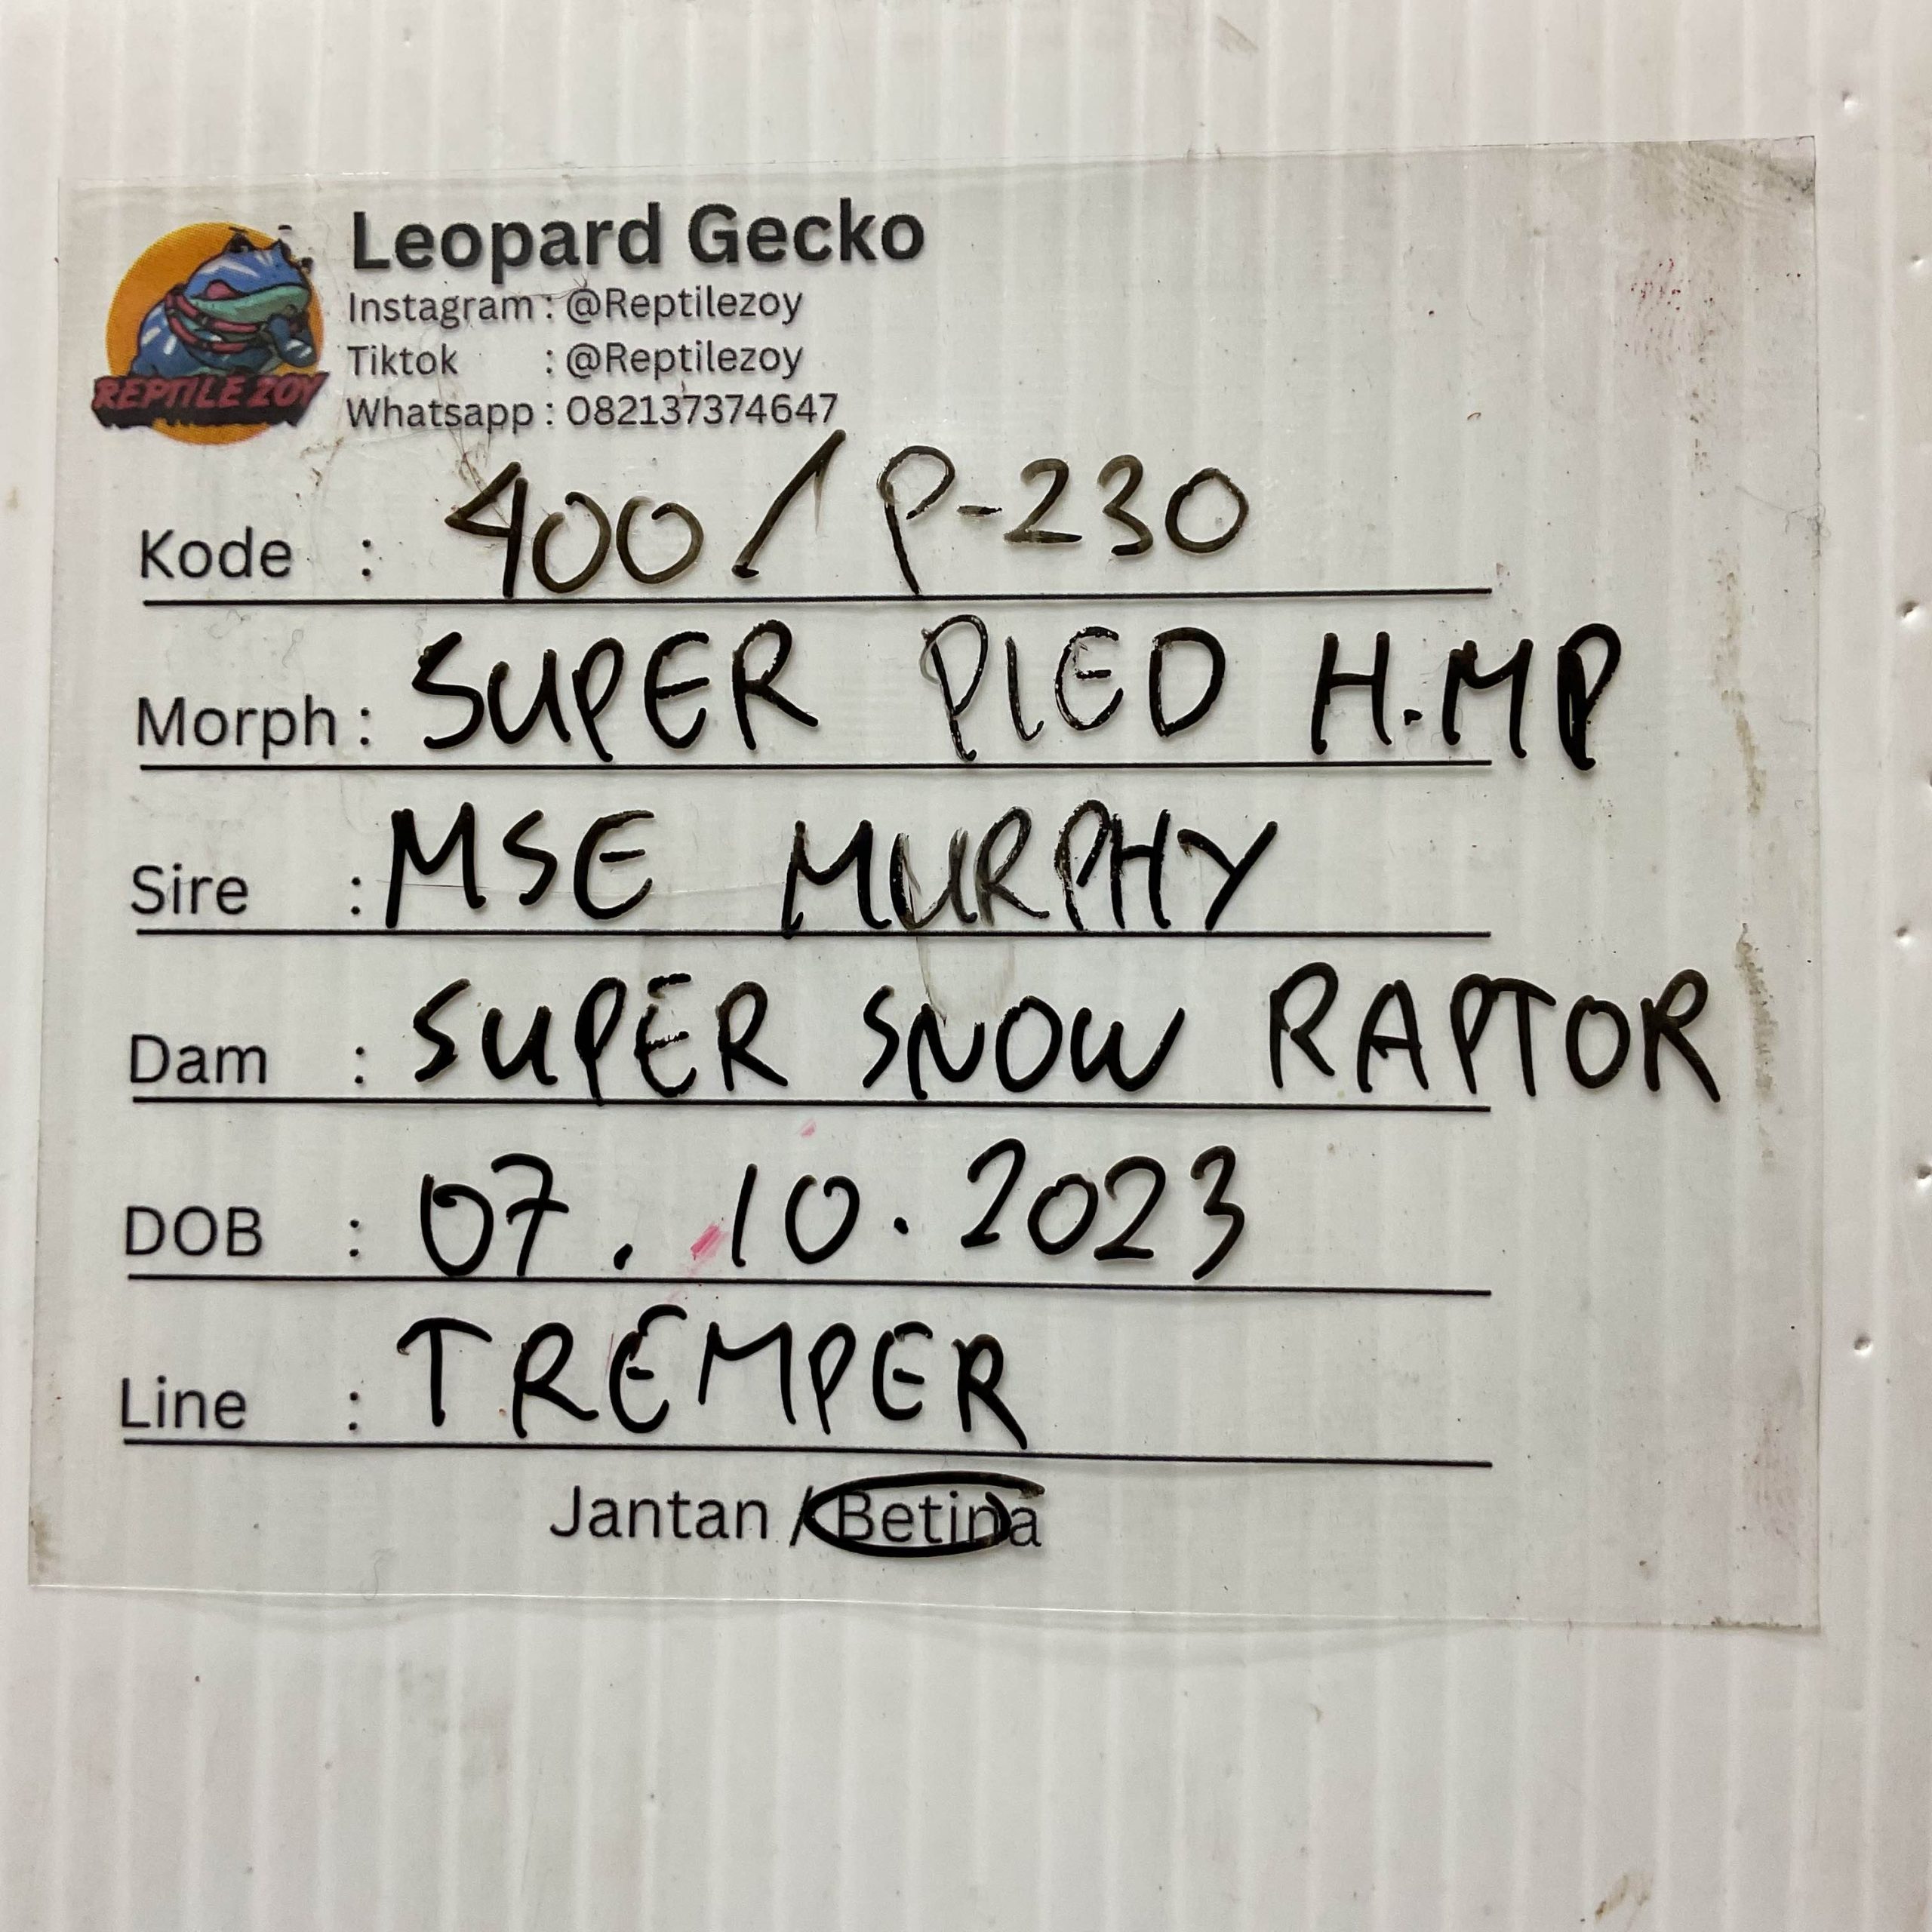 Leopard Gecko
Instagram : @Reptilezoy
Tiktok : @Reptilezoy
Whatsapp : 082137374647
REPTILE ZOY
Kode : 400 / P-230
Morph : SUPER PIED H.MP
Sire : MSE MURPHY
Dam : SUPER SNOW RAPTOR
DOB : 07.10.2023
Line : TREMPER
Jantan / Betina